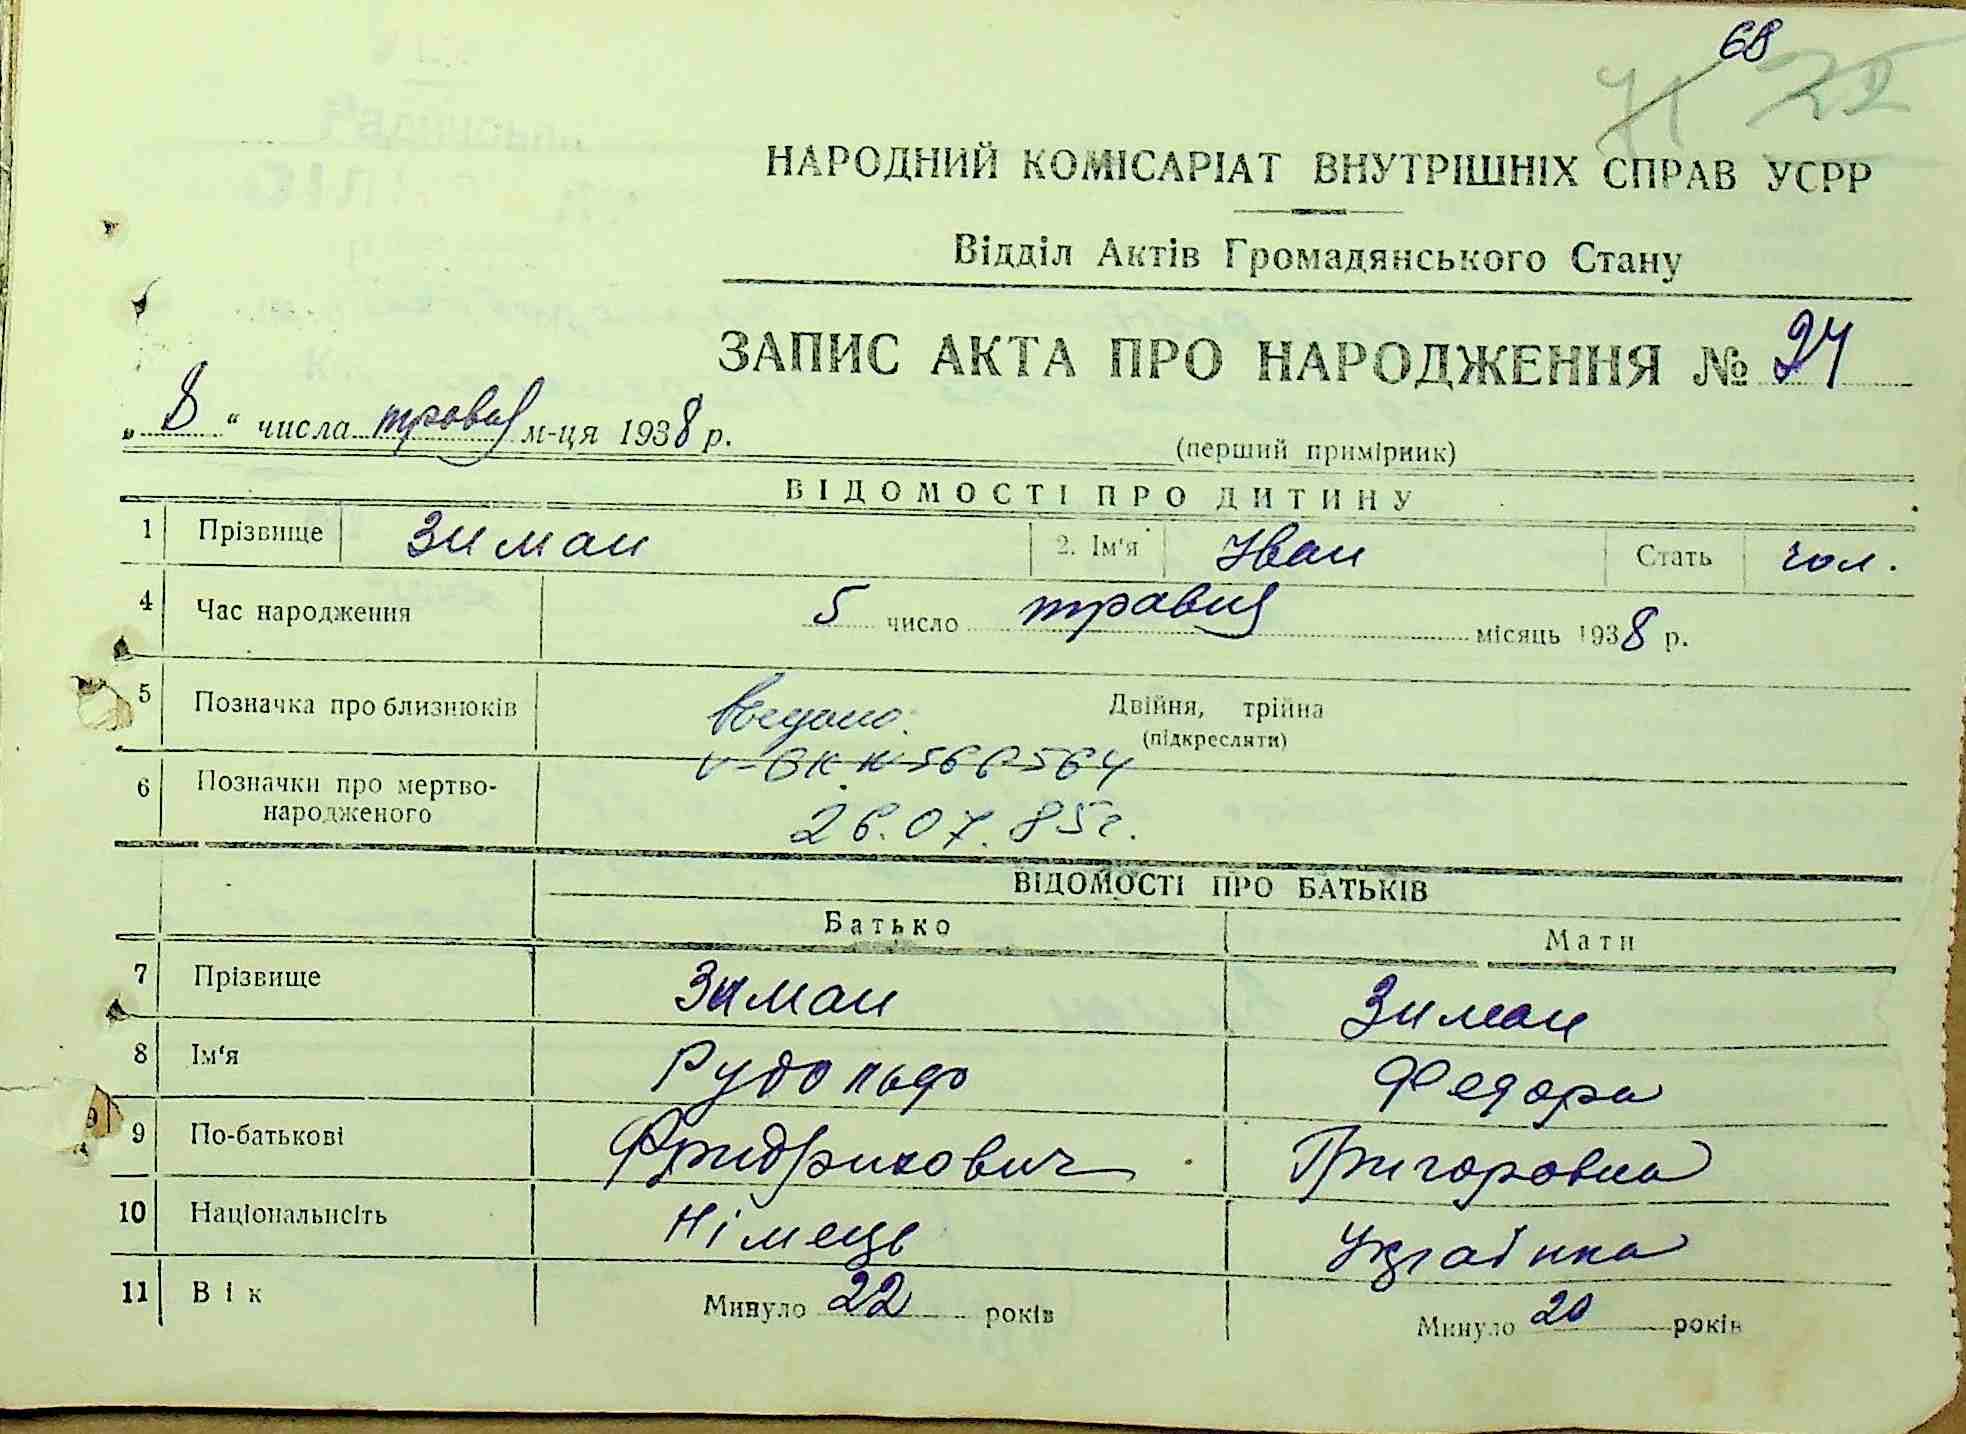 68
71
НАРОДНИЙ КОМІСАРІАТ ВНУТРІШНІХ СПРАВ УСРР
Відділ Актів Громадянського Стану
ЗАПИС АКТА ПРО НАРОДЖЕННЯ № 24
„ 8 “ числа травня м-ця 1938 р.
(перший примірник)
ВІДОМОСТІ ПРО ДИТИНУ
1 Прізвище Зиман 2. Ім'я Иван Стать чол.
4 Час народження 5 число травня місяць 1938 р.
5 Позначка про близнюків Двійня, трійна
(підкресляти)
6 Позначки про мертво-
народженого 26.07.85г.
ВІДОМОСТІ ПРО БАТЬКІВ
Батько Мати
7 Прізвище Зиман Зиман
8 Ім'я Рудольф Федора
9 По-батькові Фридрихович Григоровна
10 Національність Німець Українка
11 Вік Минуло 22 років Минуло 20 років